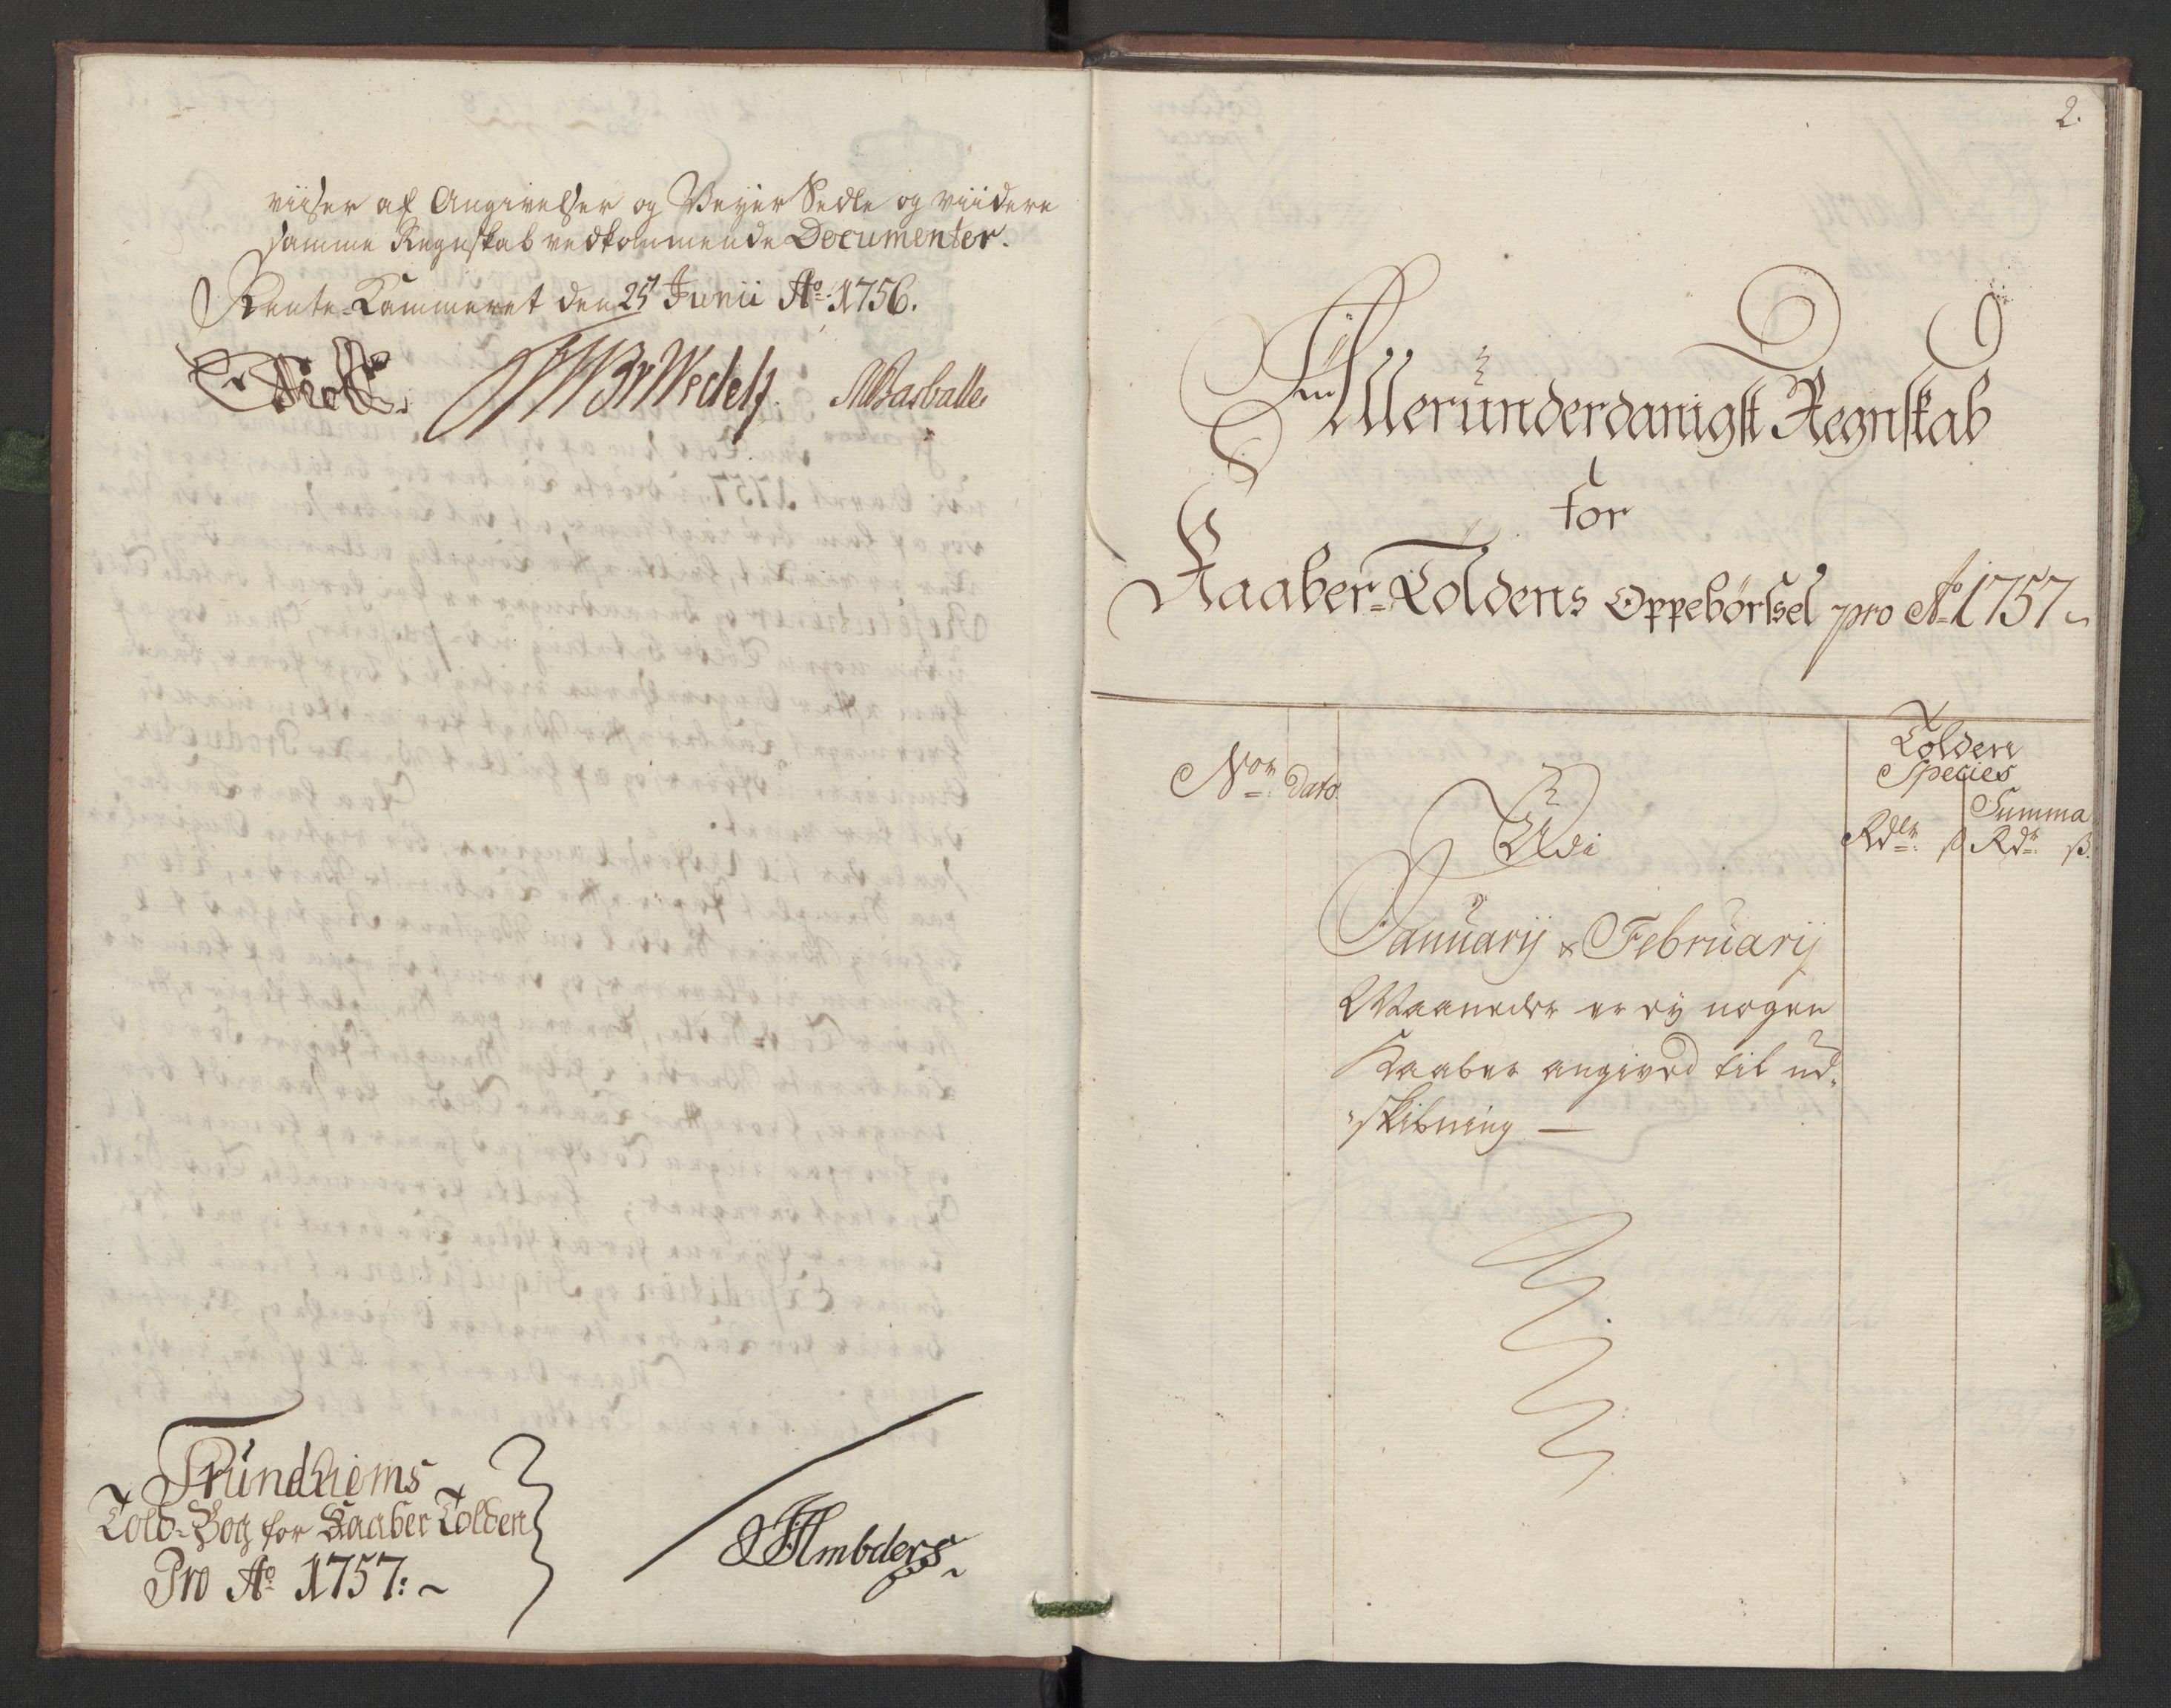 viiser af Angivelser og Veyer Sedle og viidere
samme Regnskab vedkommende Documenter.
Rente-Cammeret den 25t Junii Ao 1756.
Wedel MBasballe
Trundhiems
Told-Bog for Kaaber Tolden
Pro Ao 1757:~
2.
Allerunderdanigst Regnskab
for
Kaaber-Toldens Oppebørsel pro Ao 1757~
Nor. dato.
Tolden
Species
Summa
Rdlr. ß Rdr. ß.
Udi
Januarij & Februarij
Maaneder er ej nogen
Kaaber angived til ud-
skibning —